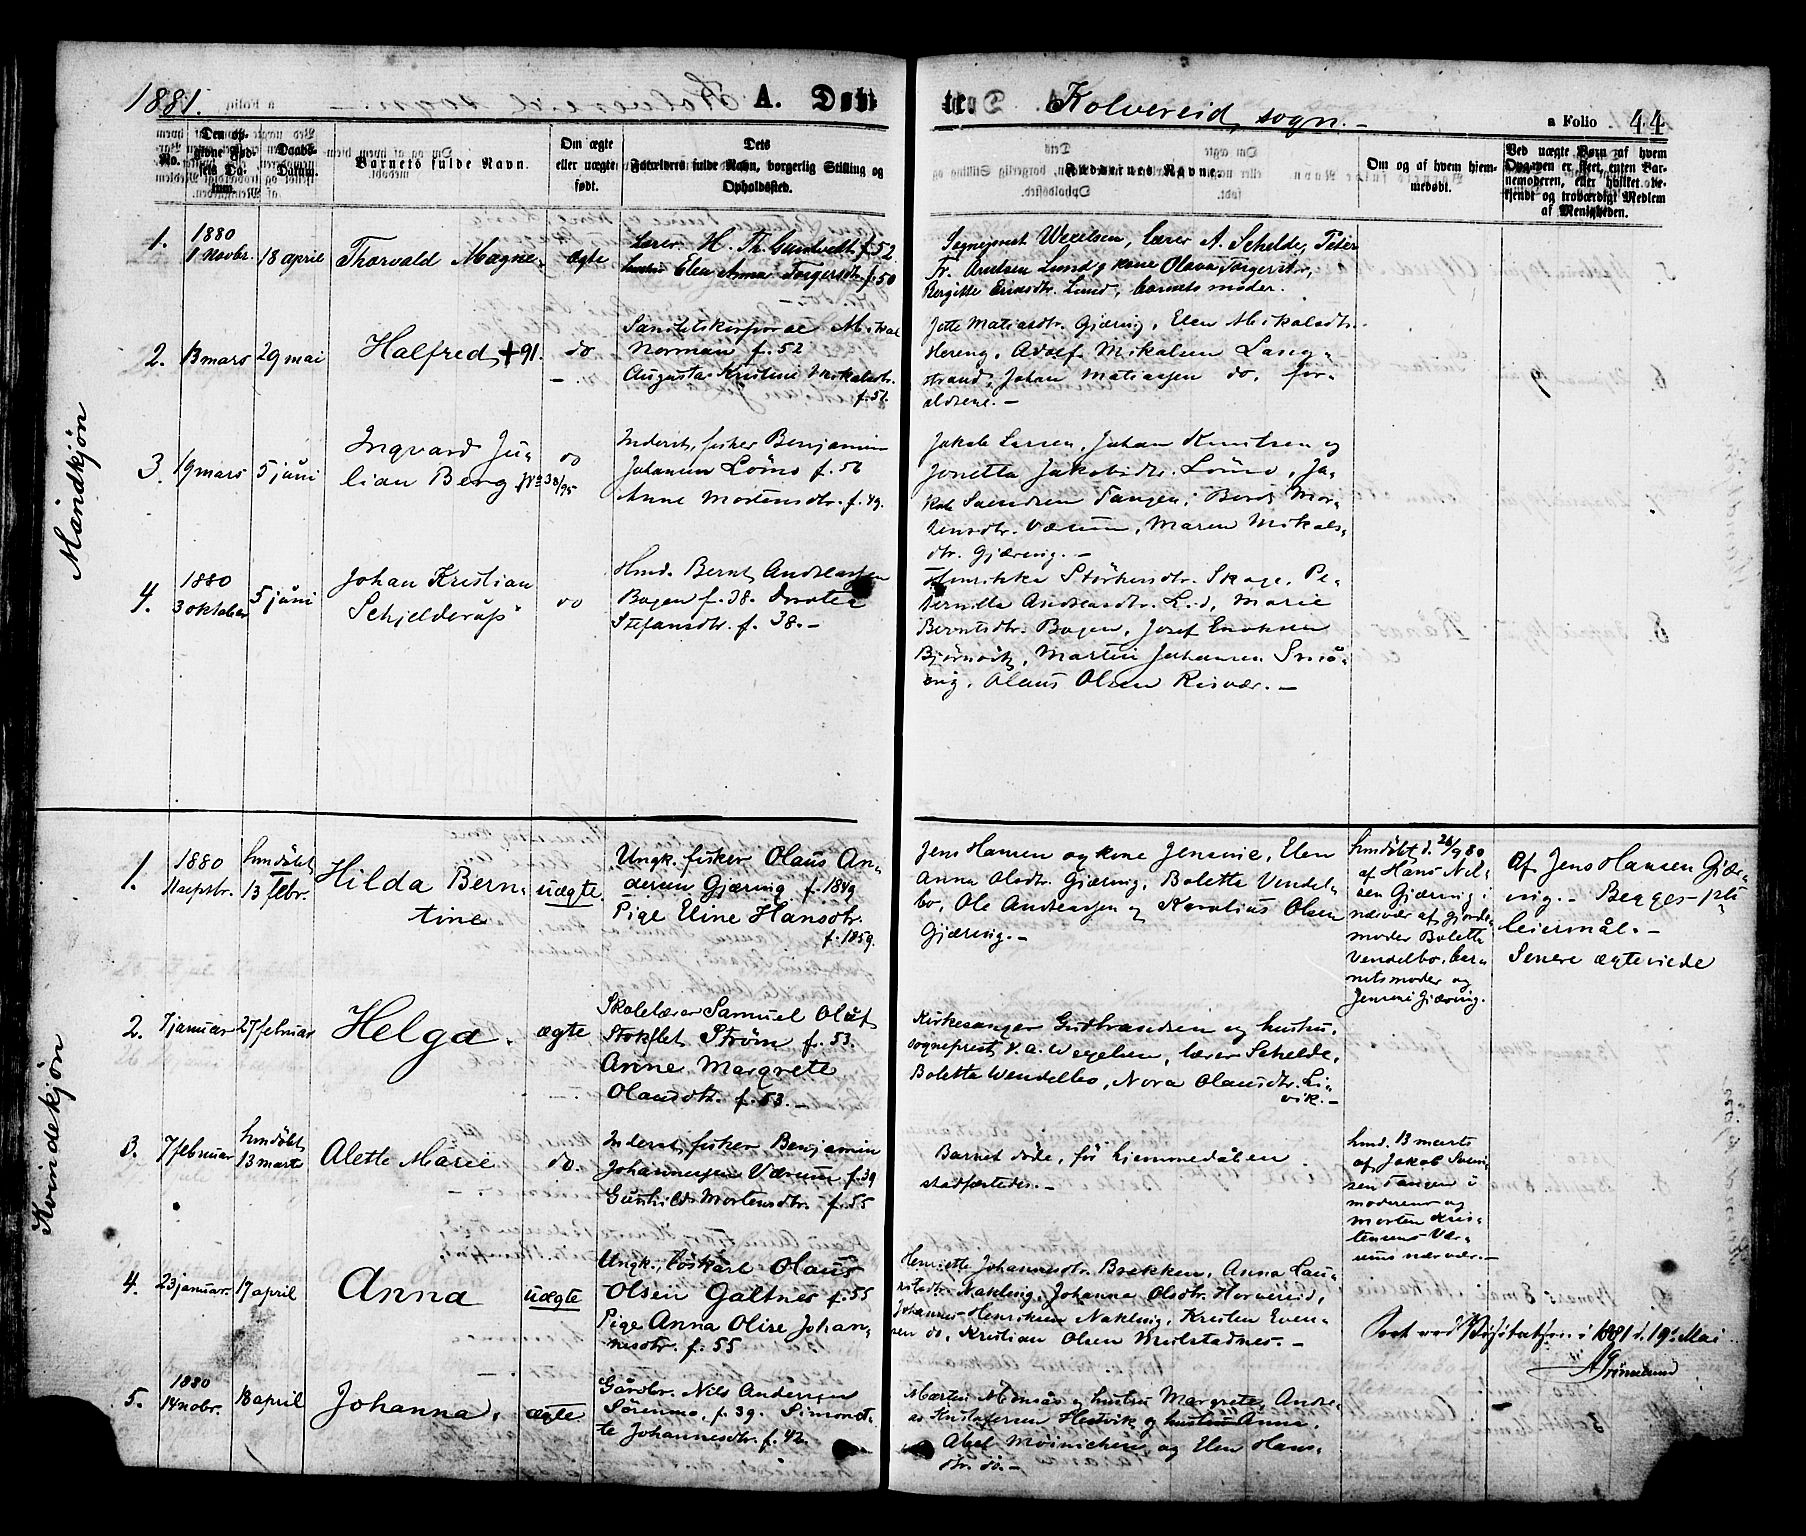 1881.
A. Døbte
Kolvereid sogn.-
a Folio 44
No.
Den opgivne Fødsels Datum.
Daabs-Datum.
Barnets fulde Navn.
Om ægte
eller uægte
født.
Dets
Forældres fulde Navn, borgerlig Stilling og
Opholdssted.
Faddernes Navne.
Om og af hvem hjemmedøbt.
Ved uægte Børn af hvem
Opgaven er skeet, enten Barnemoderen, eller hvilket bekjendt og troværdigt Medlem
af Menigheden.
Mandkjøn
1. 1880
1 Novbr. 18 april Thorvald Magne. ægte
Lærer H. Th. f. 52
Elen Anna Torgersdtr. f. 50
Sogneprest Wexelsen, lærer A. Schelde, Peter
Fr. Lund og kone Olava Torgersdtr.,
Bergitte Lund, barnets moder.
2. 13 mars 29 mai Halfred, +91. do
-
Sanitetskorporal Mikal
Norman f. 52
Augusta Kristine Mikalsdtr.
f. 51.
Jette Matiasdtr. Gjærvig, Elen Mikalsdtr.
Hereng, Adolf Mikalsen Langstrand, Johan Matiassen do, forældrene.-
3. 19 mars 5 juni Ingvard Julian Berg No 38/95 do
Inderst, fisker Benjamin
Johansen Lömo f. 56
Anne Mortensdtr. f. 49.
Jakob Larsen, Johan Knutsen og
Jonetta Jakobsdtr. Lömo, Jakob Svendsen Tangen, Berit Mortensdtr. Værum, Maren Mikalsdtr. Gjærvig.-
4. 1880
3 oktober 5 juni Johan Kristian
Schjelderup do
Hmd. Bernt Andreassen
Bogen f. 38. Dorotea
Stefansdtr. f. 38.-
Henrikka Skage, Pernilla Andreasdtr. Marie
Berntsdtr. Bogen, Josef
Bjørnvik, Martin Johansen
Olaus Olsen Risvær.-
Kvindekjøn
1. 1880
11 septbr. hmdøbt
13 febr. Hilda Berntine uægte
Ungk. fisker Olaus Andersen Gjærvig f. 1849
Pige Eline Hansdtr.
f. 1859.
Jens Hansen og kone Jensine, Elen
Anna Olsdtr. Gjærvig, Boletta Vendelbo, Ole Andreassen og Karolius Olsen
Gjærvig.-
hmdøbt d. 26/9 80
af Hans Nilsen Gjærvig i
nærvær af gjordemoder Boletta
Vendelbo, barnets moder og
Jensine Gjærvig.
Af Jens Hansen Gjærvig.- Begges 1ste
leiermål.-
Senere ægteviede
2. 7 januar 27 februar Helga. ægte
Skolelærer Samuel Olaf
Stokflet Strøm f. 53.
Anne Margrete
Olausdtr. f. 53.-
Kirkesanger Gudbrandsen og hustru,
sogneprest V. A. Wexelsen, lærer Schelde,
Boletta Wendelbo, Nora Olausdtr. Livik.-
3. 7 februar hmdøbt
13 marts Alette Marie do.
Inderst, fisker Benjamin
Johannesen Værum f. 39
Gunhild Mortensdtr. f. 55
Barnet døde, før hjemmedåben
stadfæstedes.-
hmd. 13 marts
af Jakob Svendsen Tangen i
moderens og
Morten Kristensens Værums nærvær.-
4. 23 januar 17 april Anna uægte
Ungk., löskarl Olaus
Olsen Galtnes f. 55
Pige Anna Olise Johannesdtr. f. 55
Henriette Johannesdtr. Brekken, Anna
Nakling, Johanna Olsdtr. Horvereid,
Johannes Henriksen Nakling, Kristen Evensen do, Kristian Olsen
Seet ved Visitatsen i 1881 d. 19de Mai
A Grönnlund
5. 1880
14 nobr. 18 april Johanna. ægte
Gårdbr. Nils Andersen
Sörenmo, f. 39. Simonette Johannesdtr. f. 42.
Martin Monsås og hustru Margrete, Andreas Kristofersen Hestvik og hustru Anna,
Axel Möinichen og Elen Hansdtr. do.-